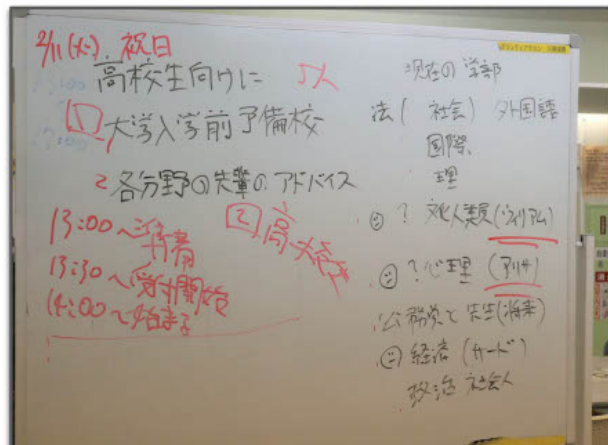 2/11(火) 祝日
高校生向けに 5人
13:00
① 大学入学前予備校
17:00
2 各分野の先輩のアドバイス
② 高
13:00〜
13:30〜受付開始
14:00〜始まる
現在の学部
法 ( 社会 ) 外国語
国際
理
? 文化人類 (ウィリアム)
? 心理 (アリサ)
公務員と先生(将来)
経済 (サード)
政治 社会人